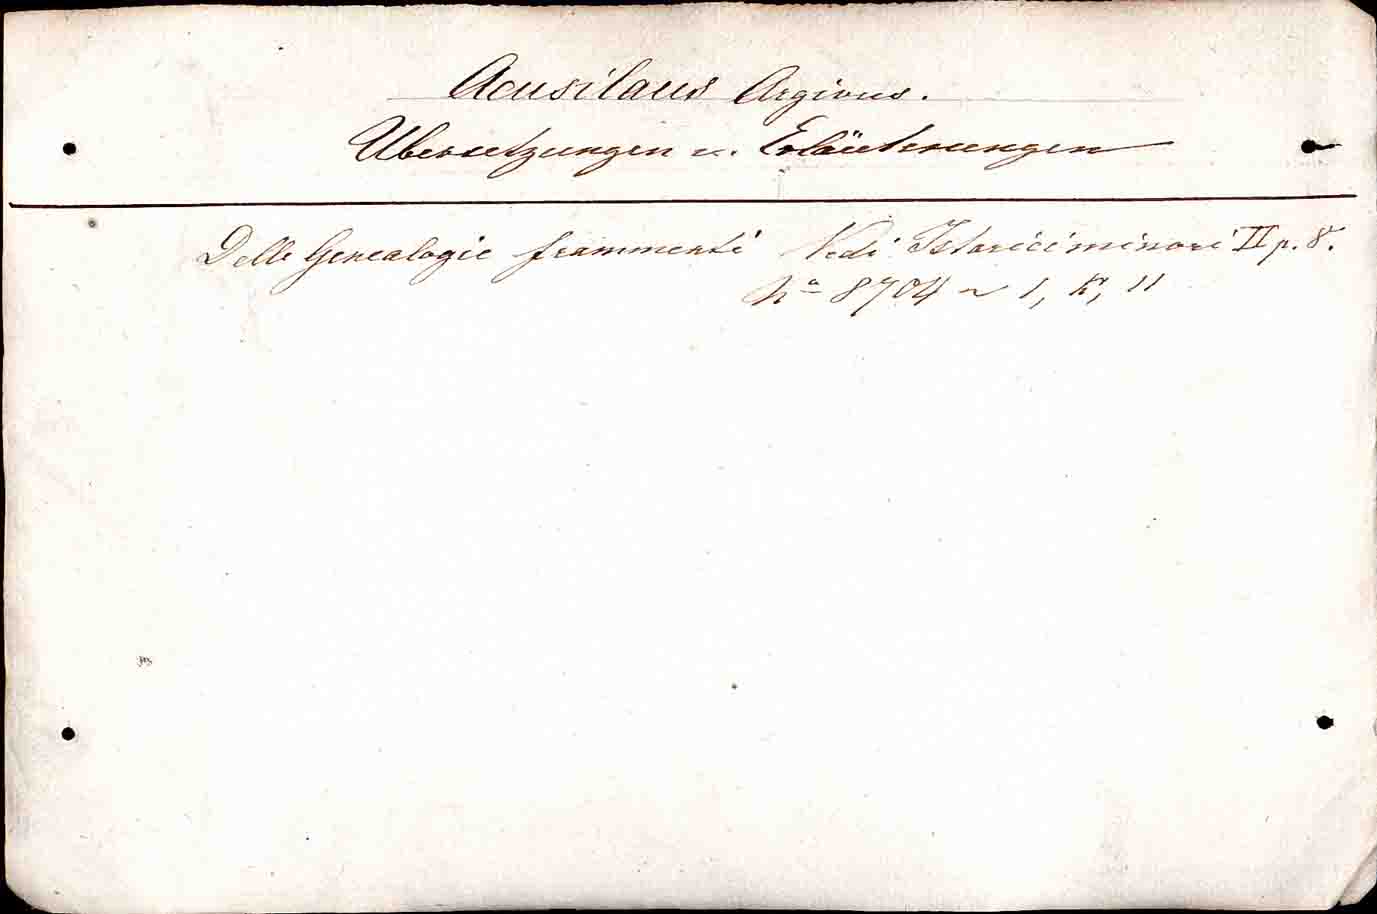 Acusilaus Argivus.
Übersetzungen u. Erläuterungen
Delle Genealogie frammenti Vedi Istorici minori II p. 8.
Nº 8704 ~ 1, K, 11